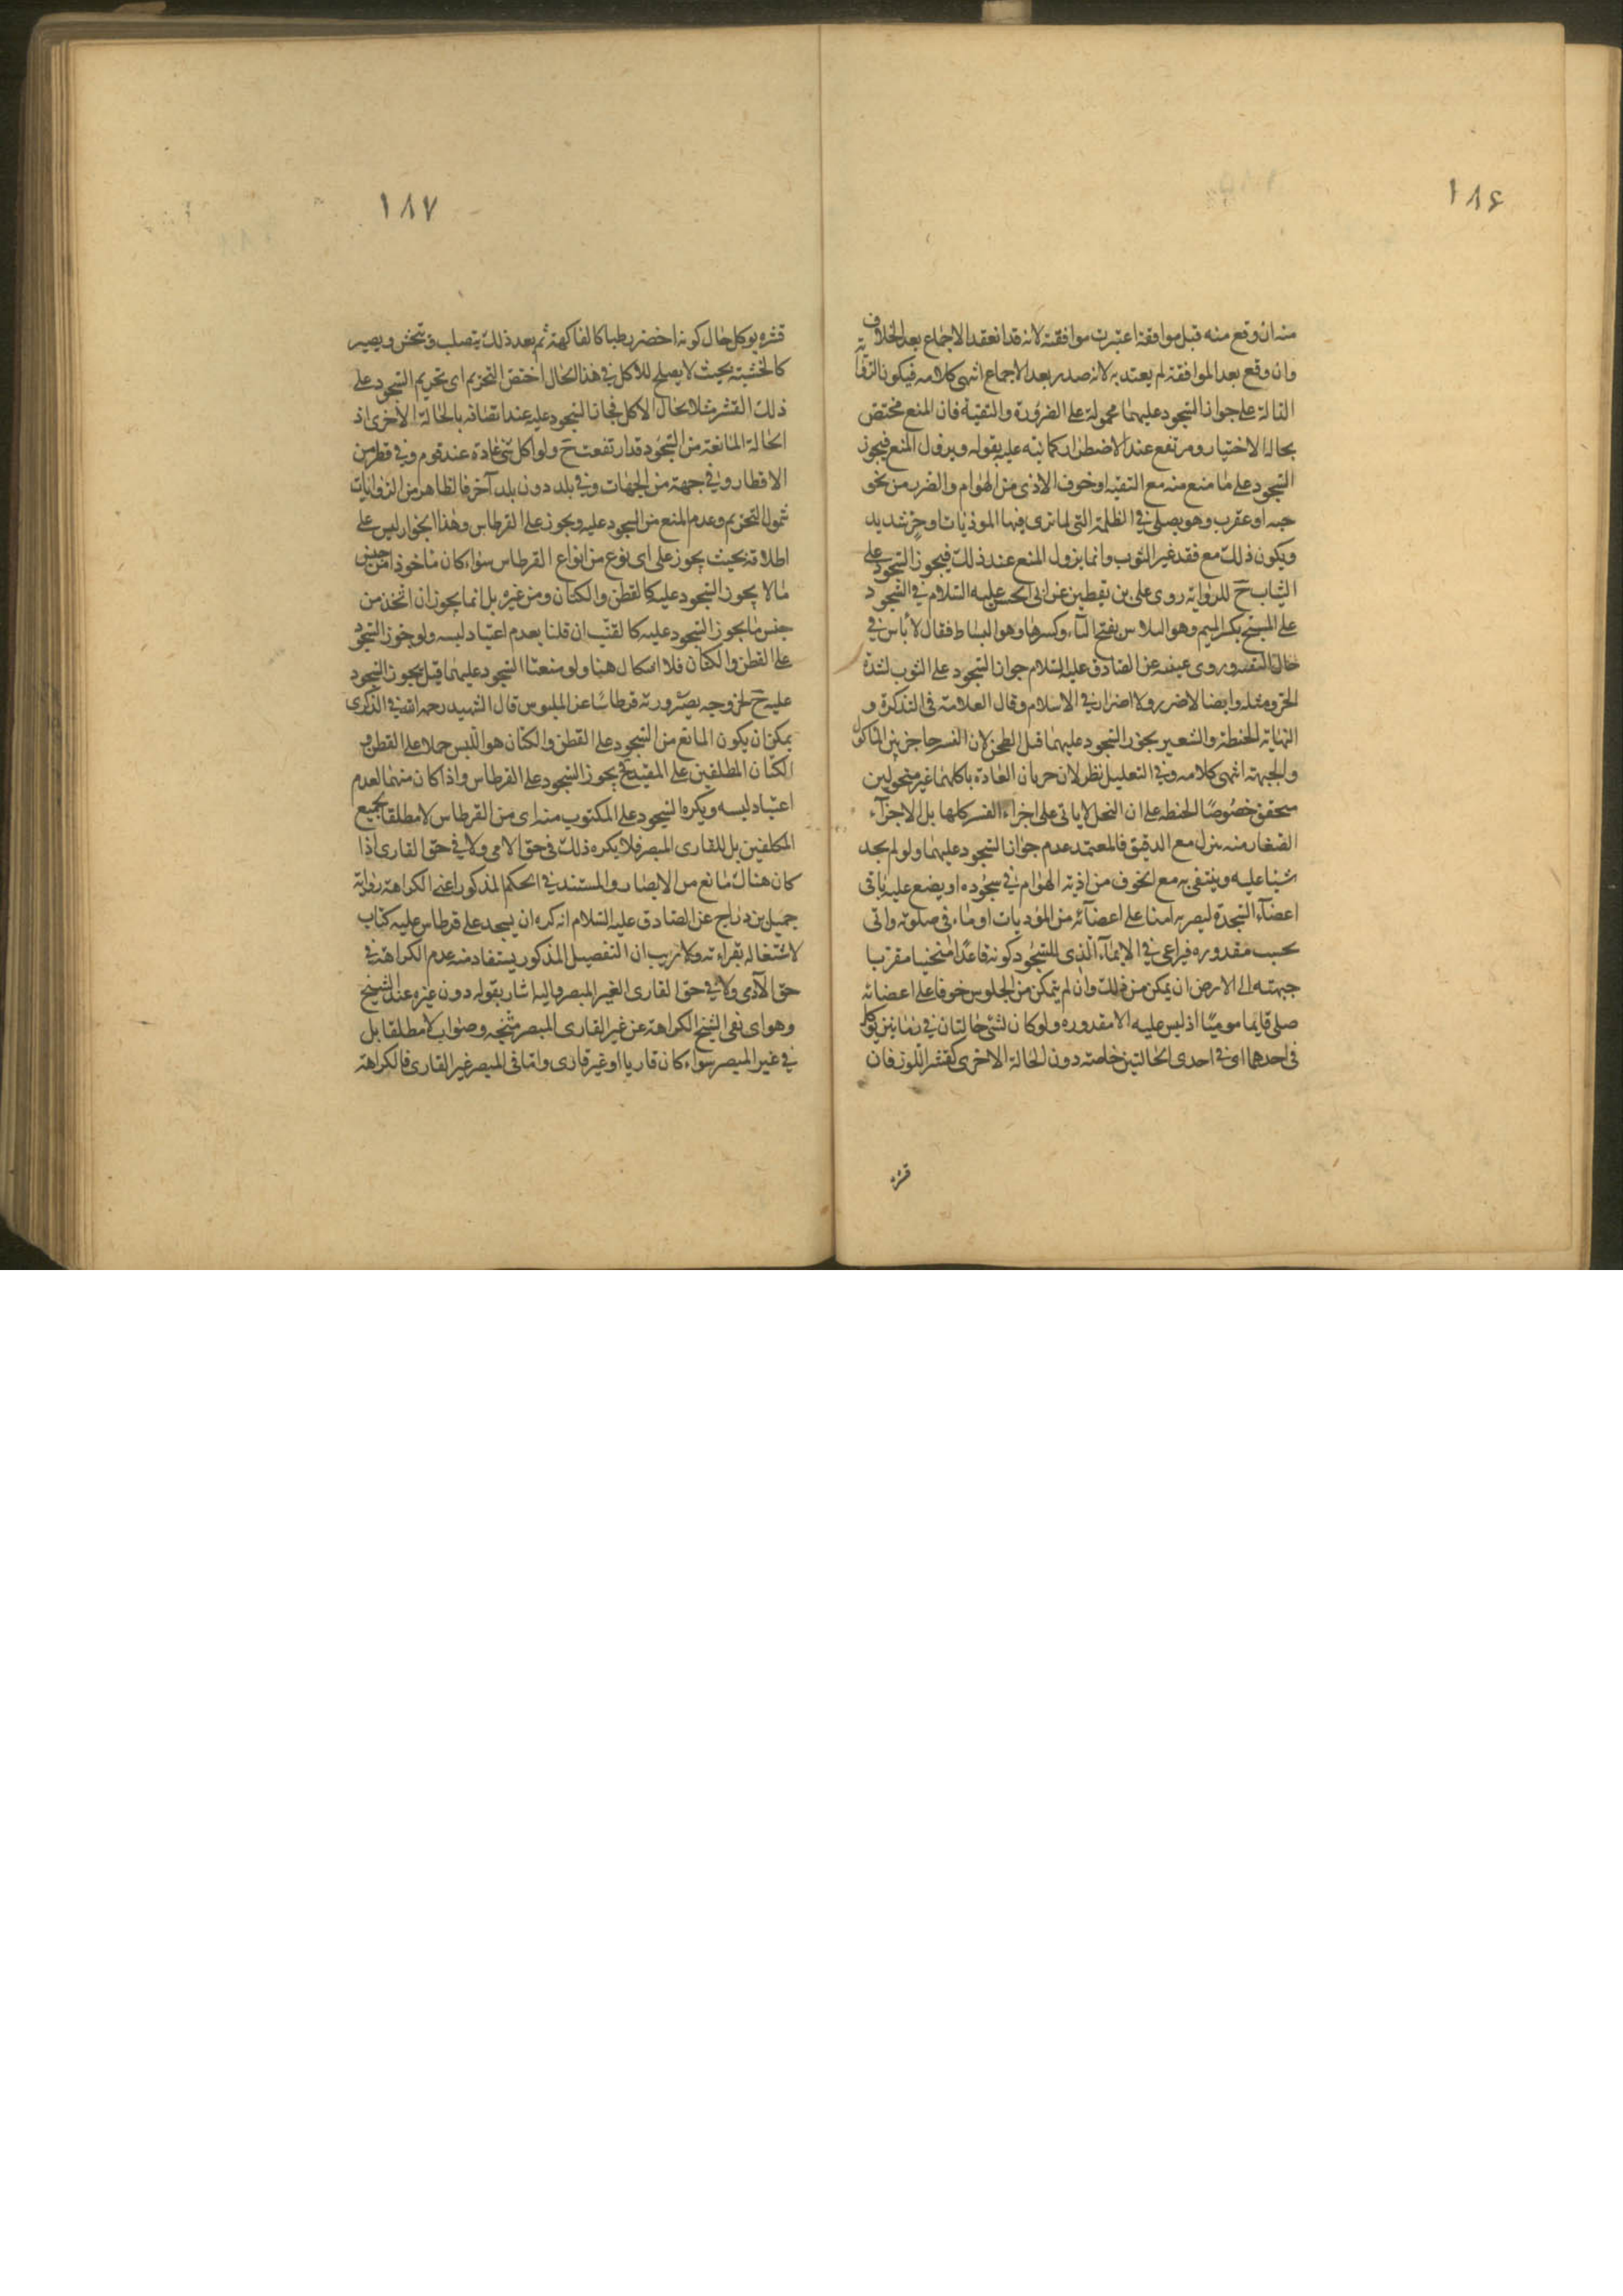 ١٨۶
منه ان وقع منه قبل موافقة اعتبرت موافقته لانه قد انعقد الاجماع بعد الخلاف
وان وقع بعد الموافقة لم يعتد به لانه صدر بعد الاجماع انتهى كلامه فيكون الرواية
الدالة على جواز السجود عليهما محمولة على الضرورة والتقية فان المنع مختص
بحالة الاختيار ومرتفع عند الاضطرار كما نبه عليه بقوله ويزول المنع فيجوز
السجود على ما منع منه مع التقية او خوف الاذى من الهوام والضرب من نحو
حية او عقرب وهو يصلي في الظلمة التي لما ترى فيها الموذيات او حر شديد
ويكون ذلك مع فقد غير الثوب وانما يزول المنع عند ذلك فيجوز السجود على
الثياب ح للرواية روى على بن يقطين عن ابى الحسن عليه السلام في السجود
على المسح بكسر الميم وهو البلاس بفتح الباء وكسرها وهو البساط فقال لا باس في
حال التقية وروى عيينه عن الصادق عليه السلام جواز السجود على الثوب لشدة
الحر ومثله وايضا لا ضرر ولا اضرار في الاسلام وقال العلامة فى التذكرة و
النهاية الحنطة والشعير يجوز السجود عليهما قبل الطحن لان القشر حاجز بين الماكول
والجبهة انتهى كلامه وفي التعليل نظر لان جريان العادة باكلهما غير منخولين
متحقق خصوصًا الحنطة على ان النخل لا ياتى على اجزاء القشر كلها بل الاجزآء
الصغار منه ينزل مع الدقيق فالمعتمد عدم جواز السجود عليهما ولو لم يجد
شيئا عليه ويتقى به مع الخوف من اذية الهوام في سجوده او يضع عليه باقى
اعضآء السجدة ليصير به امنا على اعضآئه من المؤذيات اوماء في صلوته واتى
بحسب مقدوره فيراعى في الايمآء الذى للسجود كونه قاعدًا منحنيا مقربا
جبهته الى الارض ان يمكن من ذلك وان لم يتمكن من الجلوس خوفا على اعضائه
صلى قايما موميًا اذ ليس عليه الا مقدوره ولو كان لشئ حالتان في زمانين يؤكل
فى احدهما اى في احدى الحالتين خاصة دون الحالة الاخرى كقشر اللوز فان
قشره
١٨٧
قشره يوكل حال كونه اخضر رطبا كالفاكهة ثم بعد ذلك يتصلب ويخشن ويصير
كالخشبة بحيث لا يصلح للاكل في هذا الحال اختص التحريم اى تحريم السجود على
ذلك القشر مثلا بحال الاكل فجاز السجود عليه عند اتصافه بالحالة الاخرى اذ
الحالة المانعة من السجود قد ارتفعت ح ولو اكل شئ عادة عند قوم وفي قطر من
الاقطار وفي جهة من الجهات وفي بلد دون بلد آخر فالظاهر من الروايات
شمول التحريم وعدم المنع من السجود عليه ويجوز على القرطاس وهذا الجواز ليس على
اطلاقه بحيث يجوز على اى نوع من انواع القرطاس سواء كان ماخوذا من جنس
ما لا يجوز السجود عليه كالقطن والكتان ومن غيره بل انما يجوز ان اتخذ من
جنس ما يجوز السجود عليه كالقنب ان قلنا بعدم اعتياد لبسه ولو جوز السجود
على القطن والكتان فلا اشكال هنا ولو منعنا السجود عليهما قيل يجوز السجود
عليه ح لخروجه بصيرورته قرطاسًا عن الملبوس قال الشهيد رحمه الله في الذكرى
يمكن ان يكون المانع من السجود على القطن والكتان هو اللبس حملا على القطن و
الكتان المطلقين على المقيد فح يجوز السجود على القرطاس واذا كان منهما لعدم
اعتياد لبسه ويكره السجود على المكتوب منه اى من القرطاس لا مطلقا بجميع
المكلفين بل للقارى المبصر فلا يكره ذلك فى حق الامى ولا في حق القارى اذا
كان هناك مانع من الابصار والمستند في الحكم المذكور اعنى الكراهة رواية
جميل بن دراج عن الصادق عليه السلام انه كره ان يسجد على قرطاس عليه كتاب
لاشتغاله بقراءته ولا ريب ان التفصيل المذكور يستفاد منه عدم الكراهة في
حق الامى ولا في حق القارى الغير المبصر واليه اشار بقوله دون غيره عند الشيخ
وهو اى نفى الشيخ الكراهة عن غير القارى المبصر متجه وصواب لا مطلقا بل
في غير المبصر سواء كان قاريا او غير قارى واما فى المبصر غير القارى فالكراهة